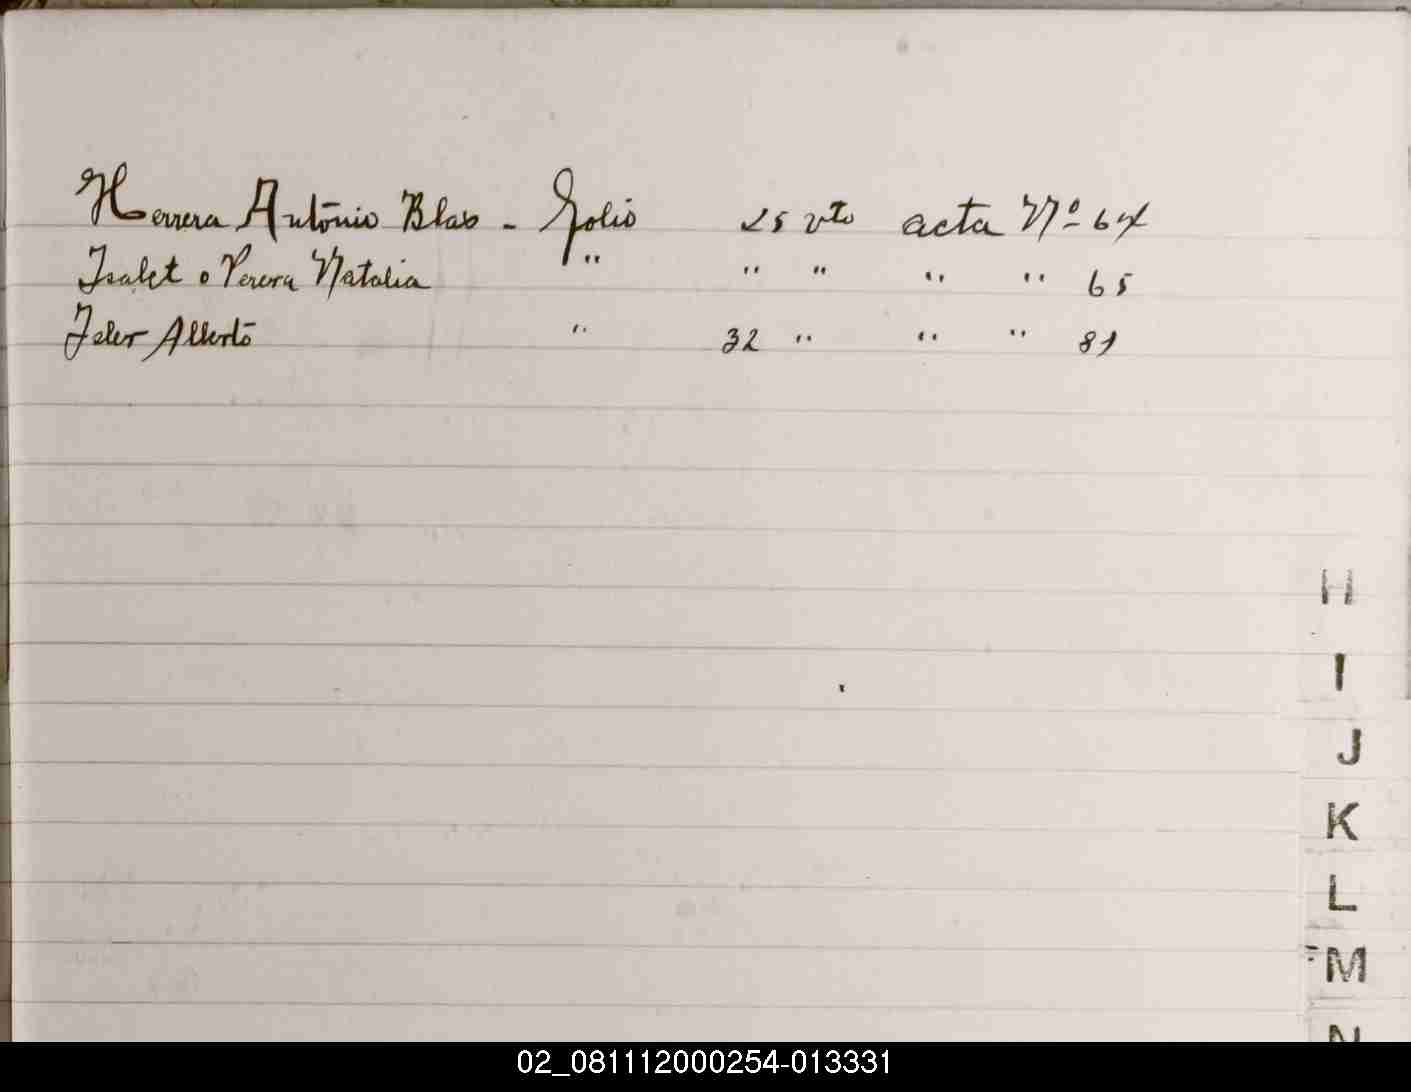 Herrera Antonio Blas - Folio 25 vto acta Nº 64
Isalet o Perera Natalia " " " " " 65
Alberto " 32 " " " 81
H
I
J
K
L
M
N
02_081112000254-013331